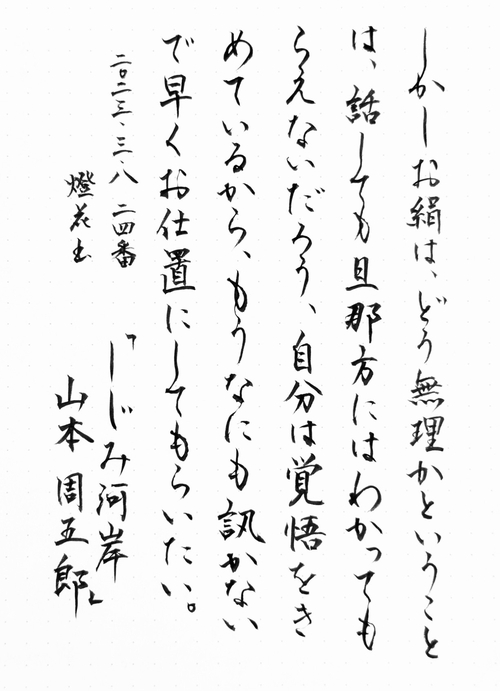 しかしお絹は、どう無理かということ
は、話しても旦那方にはわかっても
らえないだろう、自分は覚悟をき
めているから、もうなにも訊かない
で早くお仕置にしてもらいたい。
二〇二三.三.八 二四番
燈花
『しじみ河岸
山本周五郎』